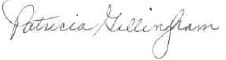 Patricia Gillingham